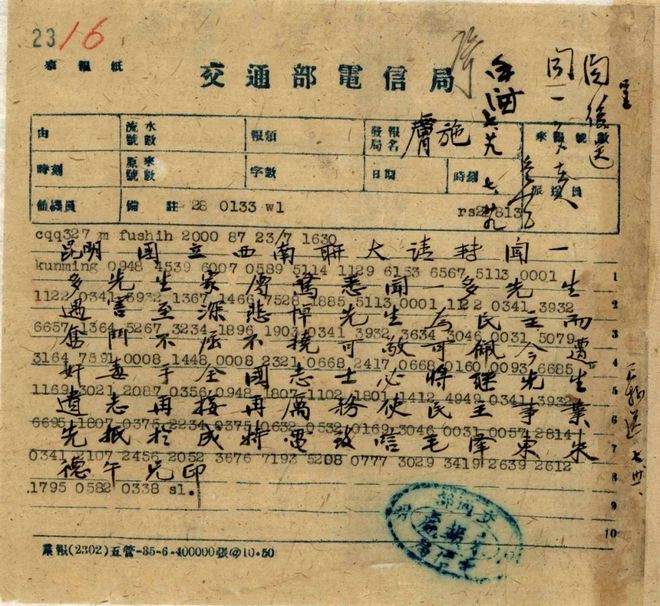 23 16
來報紙
交通部電信局
由 流水號數 報類 發報局名 膚施 來報號數
時刻 原來號數 字數 日期 時刻 派送員
值機員 備註 28 0133 w1
cqq327 m fushih 2000 87 23/7 1630
昆明 國立西南聯大请转闻一
kunming 0948 4539 6007 0589 5114 1129 6153 6567 5113 0001 1
多先生家屬驚悉闻一多先生
1122 0341 3932 1367 1466 7528 1885 5113 0001 1122 0341 3932 2
遇害至深悲悼先生為民主而
6657 1364 5267 3234 1896 1903 0341 3932 3634 3046 0031 5079 3
奮鬥不屈不撓可敬可佩今遭
3164 7891 0008 1448 0008 2321 0668 2417 0668 0160 0093 6685 4
奸毒手全國志士必將继先生
1169 3021 2087 0356 0948 1807 1102 1801 1412 4949 0341 3932 5
遺志再接再厲務使民主事業
6695 1807 0375 2234 0375 0632 0532 0169 3046 0031 0057 2814 6
先抵於成特電致唁毛澤東朱
0341 2107 2456 2052 3676 7193 5208 0777 3029 3419 2639 2612 7
德午 印
1795 0582 0338 s1. 8
9
10
業報(2302)五管-35-6-400000張@10·50